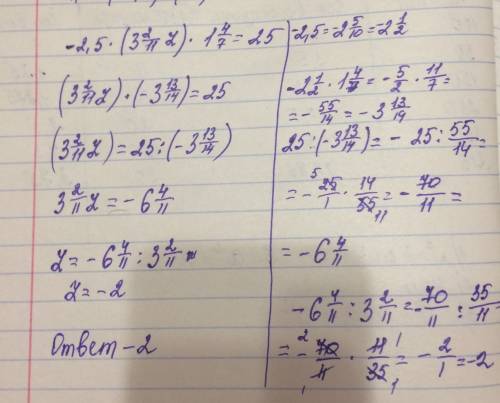 -2,5 · (3 2/11 z) · 1 4/7 = 25
(3 2/11 z) · (-3 13/14) = 25
(3 2/11 z) = 25 : (-3 13/14)
3 2/11 z = -6 4/11
z = -6 4/11 : 3 2/11
z = -2
Ответ -2
-2,5 = -2 5/10 = -2 1/2
-2 1/2 · 1 4/7 = -5/2 · 11/7 =
= -55/14 = -3 13/14
25 : (-3 13/14) = -25 : 55/14 =
= -25/1 · 14/55 = -70/11 =
= -6 4/11
-6 4/11 : 3 2/11 = -70/11 : 35/11
= -70/11 · 11/35 = -2/1 = -2